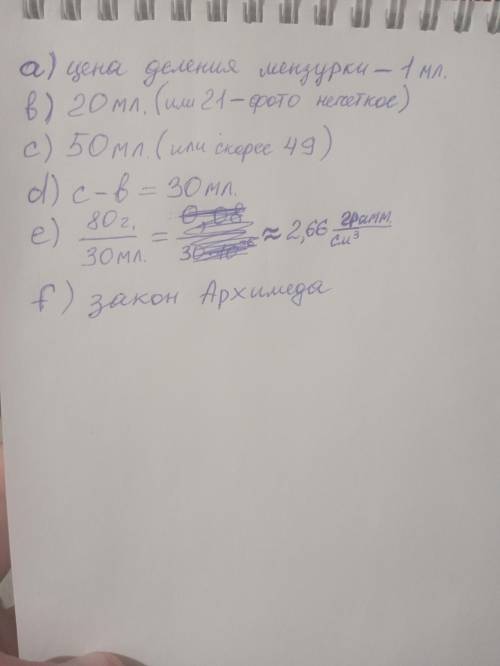 a) цена деления мензурки – 1 мл.
b) 20 мл. (или 21 – фото нечеткое)
c) 50 мл. (или скорее 49)
d) c – b = 30 мл.
e) 80 г. / 30 мл. = ≈ 2,66 грамм / см³
f) закон Архимеда